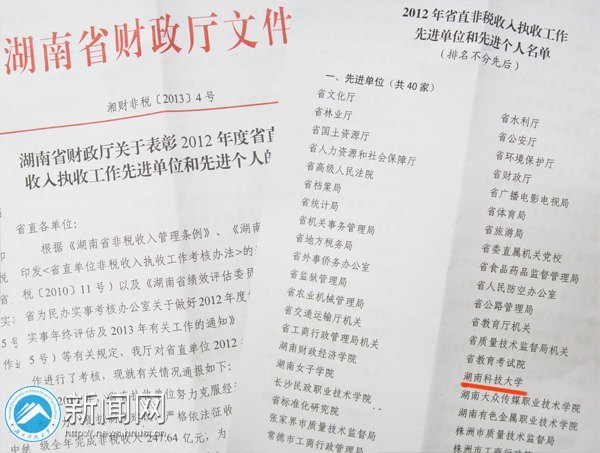 湖南省财政厅文件
湘财非税〔2013〕4号
湖南省财政厅关于表彰2012年度省直
收入执收工作先进单位和先进个人的
省直各单位：
根据《湖南省非税收入管理条例》、《湖南
印发<省直单位非税收入执收工作考核办法>的
税〔2010〕11号）以及《湖南省绩效评估委员
省为民办实事考核办公室关于做好2012年度
实事年终评估及2013年有关工作的通知》
5号）等有关规定，我厅对省直单位2012年
作进行了考核，现就有关情况通报如下：
单位努力克服经
严格依法征收
级全年完成非税收入241.64亿元，为
2012年省直非税收入执收工作
先进单位和先进个人名单
（排名不分先后）
一、先进单位（共40家）
省文化厅
省林业厅
省国土资源厅
省人力资源和社会保障厅
省高级人民法院
省档案局
省统计局
省机关事务管理局
省地方税务局
省外事侨务办公室
省监狱管理局
省农业机械管理局
省交通运输厅机关
省工商行政管理局机关
湖南财政经济学院
湖南女子学院
长沙民政职业技术学院
省标准化研究院
张家界市质量技术监督局
常德市工商行政管理局
省水利厅
省公安厅
省环境保护厅
省财政厅
省广播电影电视局
省体育局
省旅游局
省委直属机关党校
省食品药品监督管理局
省人民防空办公室
省公路管理局
省教育厅机关
省质量技术监督局机关
省教育考试院
湖南科技大学
湖南大众传媒职业技术学院
湖南有色金属职业技术学院
株洲市质量技术监督局
株洲市工商行政管理局
新闻网
http://news.hnust.cn